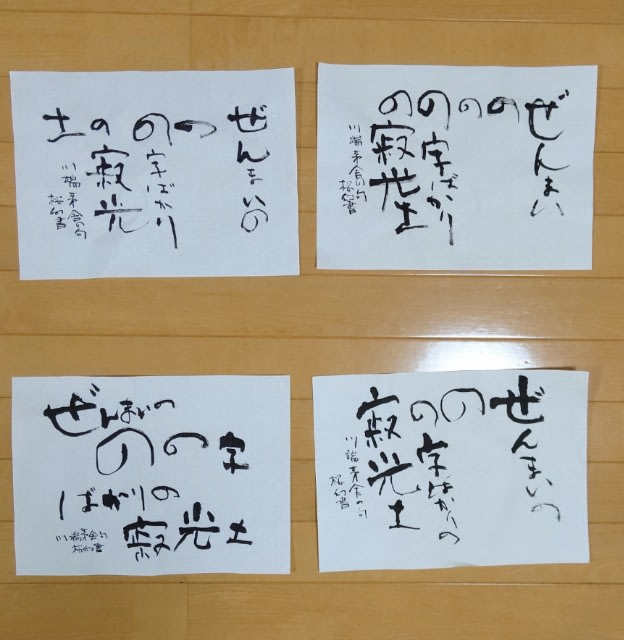 ぜんまいの
の
の字ばかり
の寂光
土
川端茅舎の句
ぜんまい
の
の
の字ばかり
の寂光土
川端茅舎の句
ぜんまいの
のの字
ばかりの
寂光土
川端茅舎句
ぜんまいの
の
の字ばかりの
寂光土
川端茅舎の句